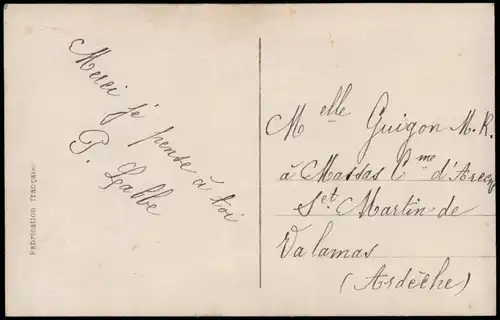 Merci je pense à toi
P. Labbe
Melle Guigon M. R.
à Massas Cme d'Arcy
St Martin de
Valamas
(Ardèche)
Fabrication Française